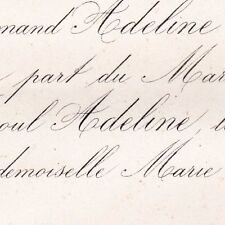 mand Adeline
part du Mar
oul Adeline,
demoiselle Marie